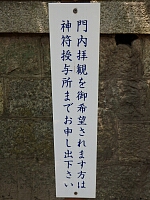 門内拝観を御希望されます方は
神符授与所までお申し出下さい